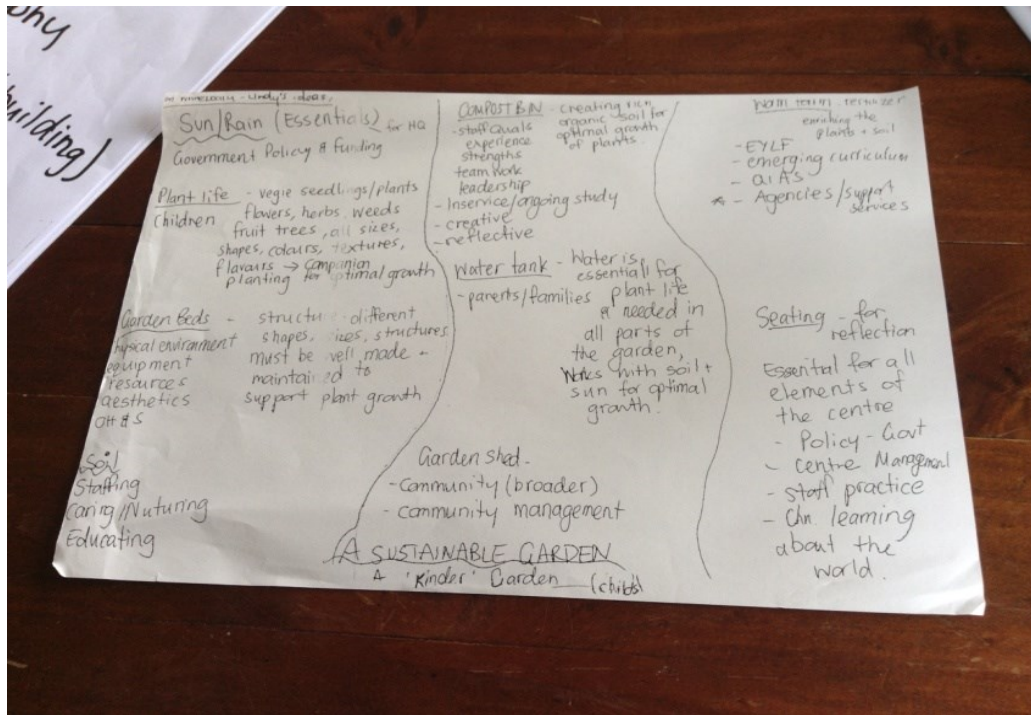 ohy
building)
Lindy's ideas,
Sun/Rain (Essentials) for HQ
Government Policy & Funding
Plant life - vegie seedlings/plants
Children flowers, herbs, weeds
fruit trees, all sizes,
shapes, colours, textures,
flavours → companion
planting for optimal growth
Garden Beds - structure different
physical environment shapes, sizes, structures
equipment must be well made -
resources maintained to
aesthetics support plant growth
OH&S
Soil
Staffing
Caring/Nuturing
Educating
COMPOST BIN - creating rich
organic soil for
optimal growth
of plants.
- staff Quals
experience
strengths
team work
leadership
- Inservice/ongoing study
- creative
- reflective
Water tank - Water is
essentiall for
- parents/families plant life
& needed in
all parts of
the garden,
Works with soil +
sun for optimal
growth.
Garden shed -
- Community (broader)
- community management
A SUSTAINABLE GARDEN
A 'Kinder' Garden (childs)
Worm farm - fertilizer
enriching the
plants + soil
- EYLF
- emerging curriculum
- QIAS
* - Agencies/support
services
Seating - for
reflection
Essential for all
elements of
the centre
- Policy - Govt
- Centre Management
- staff practice
- Chn learning
about the
world.